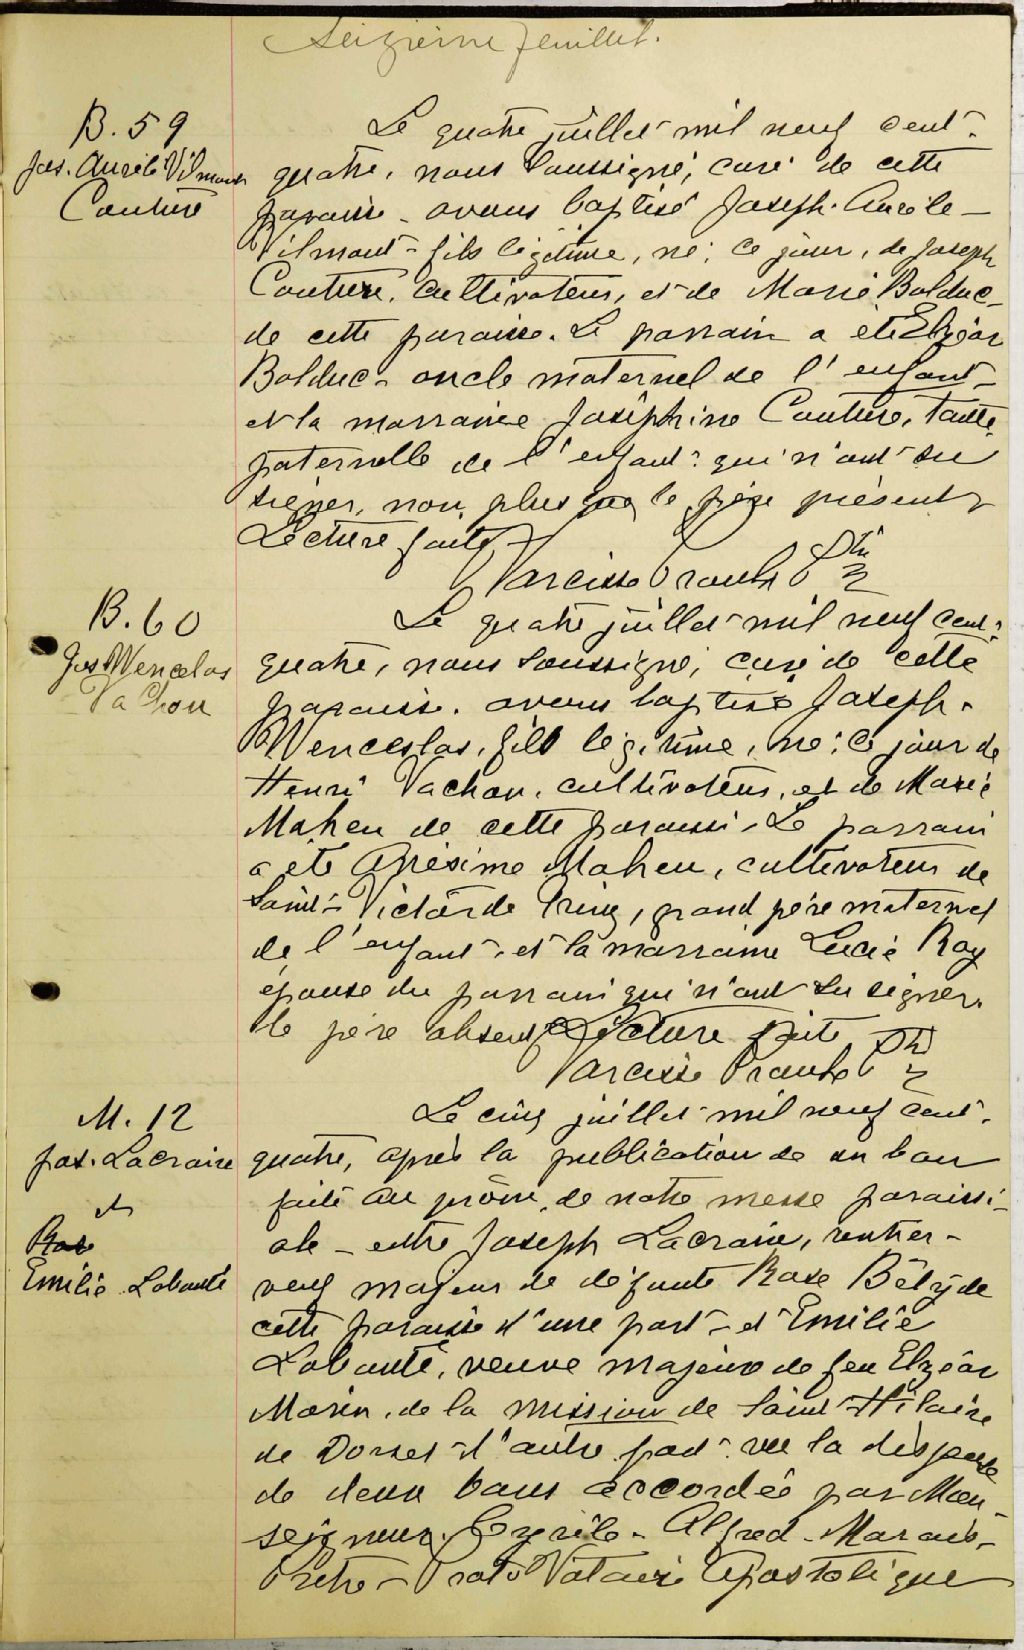 Seizième feuillet.
B. 59
Jos. Aurèle Vilmont
Couture
Le quatre juillet mil neuf cent-
quatre, nous soussigné, curé de cette
paroisse - avons baptisé Joseph-Aurèle-
Vilmont- fils légitime, né; ce jour, de Joseph
Couture, cultivateur, et de Marie Bolduc-
de cette paroisse. Le parrain a été Elzéar
Bolduc- oncle maternel de l'enfant-
et la marraine Joséphine Couture, tante
paternelle de l'enfant- qui n'ont su
signer, non plus que le père présent
Lecture faite
Narcisse Proulx Ptre
B. 60
Jos Wencelas
Vachon
Le quatre juillet mil neuf cent-
quatre, nous soussigné, curé de cette
paroisse. avons baptisé Joseph-
Wenceslas, fils légitime, né; ce jour de
Henri Vachon, cultivateur, et de Marie
Maheu de cette paroisse. Le parrain
a été Onésime Maheu, cultivateur de
Saint-Victor de Tring, grand père maternel
de l'enfant, et la marraine Lucie Roy
épouse du parrain qui n'ont su signer.
le père absent Lecture faite
Narcisse Proulx Ptre
M. 12
Jos. Lacroix
et
Rose
Emilie Labonté
Le cinq juillet mil neuf cent-
quatre, après la publication de un ban
faite au prône de notre messe paroissi-
ale - entre Joseph Lacroix, rentier-
veuf majeur de défunte Rose Bély de
cette paroisse d'une part- et Emilie
Labonté, veuve majeure de feu Elzéar
Morin, de la mission de Saint Hilaire
de Dorset d'autre part- vu la dispense
de deux bans accordée par Mon-
seigneur Cyrille-Alfred-Marois-
Prêtre- Proto Notaire Apostolique